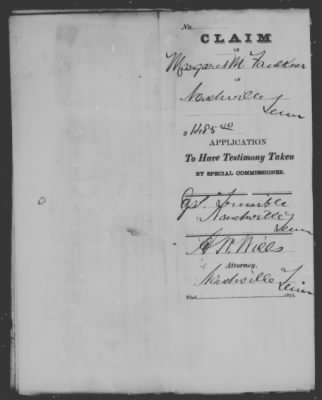 No.
CLAIM
OF
Margaret M Faulkner
OF
Nashville
Tenn
$1485.00
APPLICATION
To Have Testimony Taken
BY SPECIAL COMMISSIONER.
Jas. Trimble
Nashville
Tenn
A W Wills
Attorney.
Nashville
Tenn
Filed 187